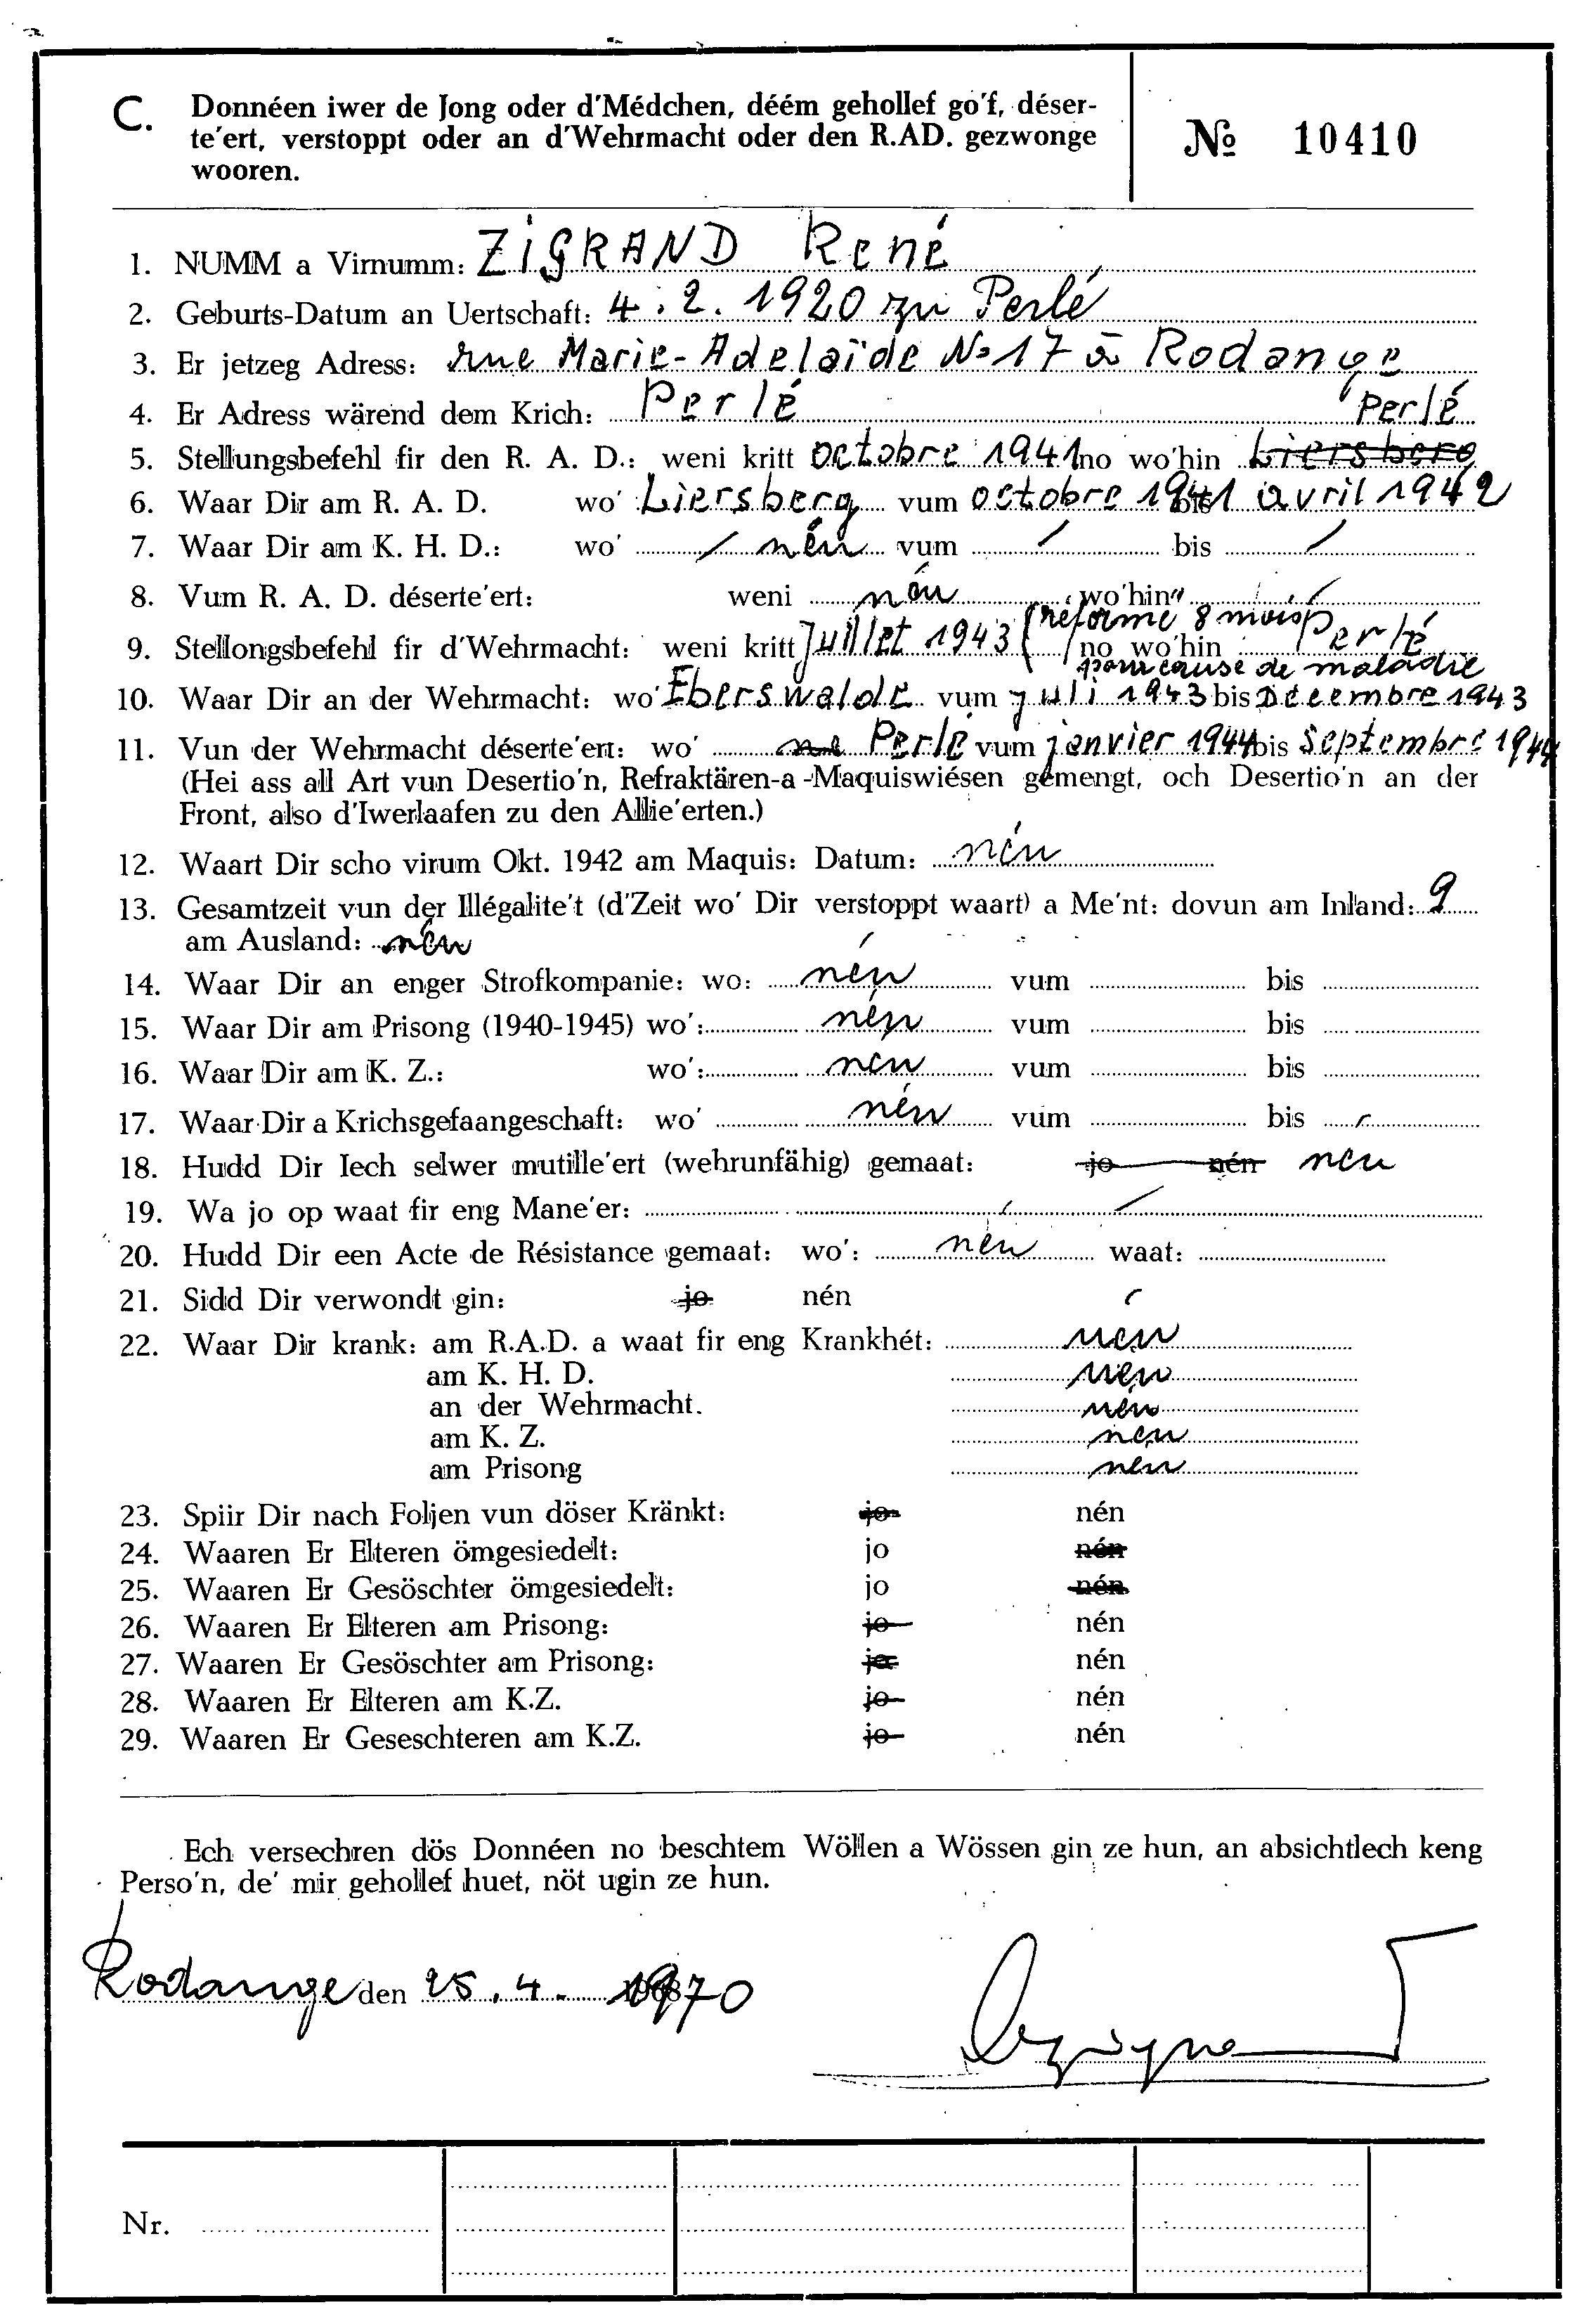 C. Donnéen iwer de Jong oder d'Médchen, déém gehollef go'f, déser-
te'ert, verstoppt oder an d'Wehrmacht oder den R.AD. gezwonge
wooren.
№ 10410
1. NUMM a Virnumm: ZIGRAND René
2. Geburts-Datum an Uertschaft: 4.2.1920 zu Perlé
3. Er jetzeg Adress: rue Marie-Adelaïde No 17 à Rodange
4. Er Adress wärend dem Krich: Perlé
Perlé
5. Stellungsbefehl fir den R. A. D.: weni kritt octobre 1941 no wo'hin Liersberg
6. Waar Dir am R. A. D. wo' Liersberg vum octobre 1941 bis avril 1942
7. Waar Dir am K. H. D.: wo' / nén vum / bis /
8. Vum R. A. D. déserte'ert: weni nén wo'hin /
(réforme 8 mois
9. Stellongsbefehl fir d'Wehrmacht: weni kritt Juillet 1943 no wo'hin Perlé
pour cause de maladie
10. Waar Dir an der Wehrmacht: wo' Eberswalde vum Juli 1943 bis Décembre 1943
11. Vun der Wehrmacht déserte'ert: wo' Perlé vum janvier 1944 bis septembre 1944
(Hei ass all Art vun Desertio'n, Refraktären-a-Maquiswiésen gemengt, och Desertio'n an der
Front, also d'Iwerlaafen zu den Allie'erten.)
12. Waart Dir scho virum Okt. 1942 am Maquis: Datum: nén
13. Gesamtzeit vun der Illégalite't (d'Zeit wo' Dir verstoppt waart) a Me'nt: dovun am Inland: 9
am Ausland: nén
14. Waar Dir an enger Strofkompanie: wo: nén vum bis
15. Waar Dir am Prisong (1940-1945) wo': nén vum bis
16. Waar Dir am K. Z.: wo': nen vum bis
17. Waar Dir a Krichsgefaangeschaft: wo' nén vum bis
18. Hudd Dir Iech selwer mutille'ert (wehrunfähig) gemaat: jo nén nen
19. Wa jo op waat fir eng Mane'er: /
20. Hudd Dir een Acte de Résistance gemaat: wo': nén waat:
21. Sidd Dir verwondt gin: jo nén
22. Waar Dir krank: am R.A.D. a waat fir eng Krankhét: nen
am K. H. D. nen
an der Wehrmacht. nén
am K. Z. nen
am Prisong nen
23. Spiir Dir nach Foljen vun döser Kränkt: jo nén
24. Waaren Er Elteren ömgesiedelt: jo nén
25. Waaren Er Gesöschter ömgesiedelt: jo nén
26. Waaren Er Elteren am Prisong: jo nén
27. Waaren Er Gesöschter am Prisong: jo nén
28. Waaren Er Elteren am K.Z. jo nén
29. Waaren Er Geseschteren am K.Z. jo nén
Ech versechren dös Donnéen no beschtem Wöllen a Wössen gin ze hun, an absichtlech keng
Perso'n, de' mir gehollef huet, nöt ugin ze hun.
Rodange den 25.4. 1970
Nr.